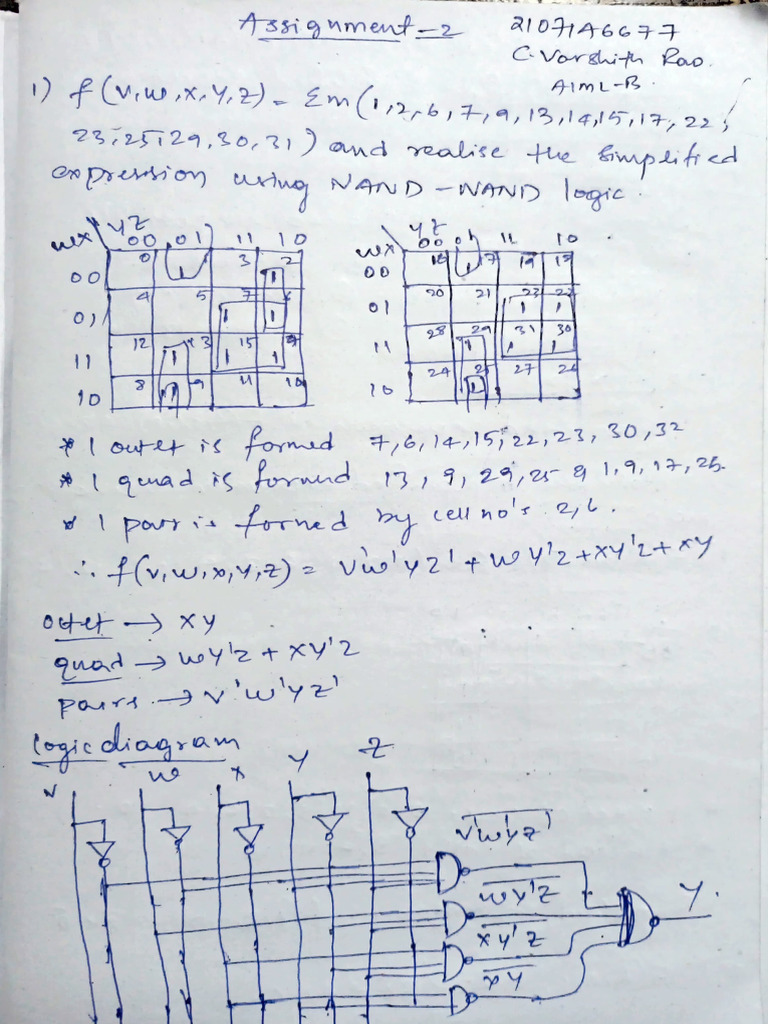 Assignment-2
21071A6677
C. Varshith Rao.
AIML-B.
1) f(v,w,x,y,z) = Σm(1,2,6,7,9,13,14,15,17,22,
23,25,29,30,31) and realise the simplified
expression using NAND-NAND logic.
yz
wx 00 01 11 10
00 0 1 3 2 1
01 4 5 7 1 6 1
11 12 13 1 15 1 1
10 8 9 1 11 10
yz
wx 00 01 11 10
00 1 19 18
01 20 21 23 1 22 1
11 28 29 1 31 1 30 1
10 24 25 1 27 26
* 1 octet is formed 7,6,14,15,22,23,30,32
* 1 quad is formed 13,9,29,25 & 1,9,17,25.
* 1 pair is formed by cell no's 2,6.
∴ f(v,w,x,y,z) = v'w'yz' + wy'z + xy'z + xy
octet → xy
quad → wy'z + xy'z
pairs → v'w'yz'
Logic diagram
v w x y z
v'w'yz'
wy'z
xy'z
xy
y.